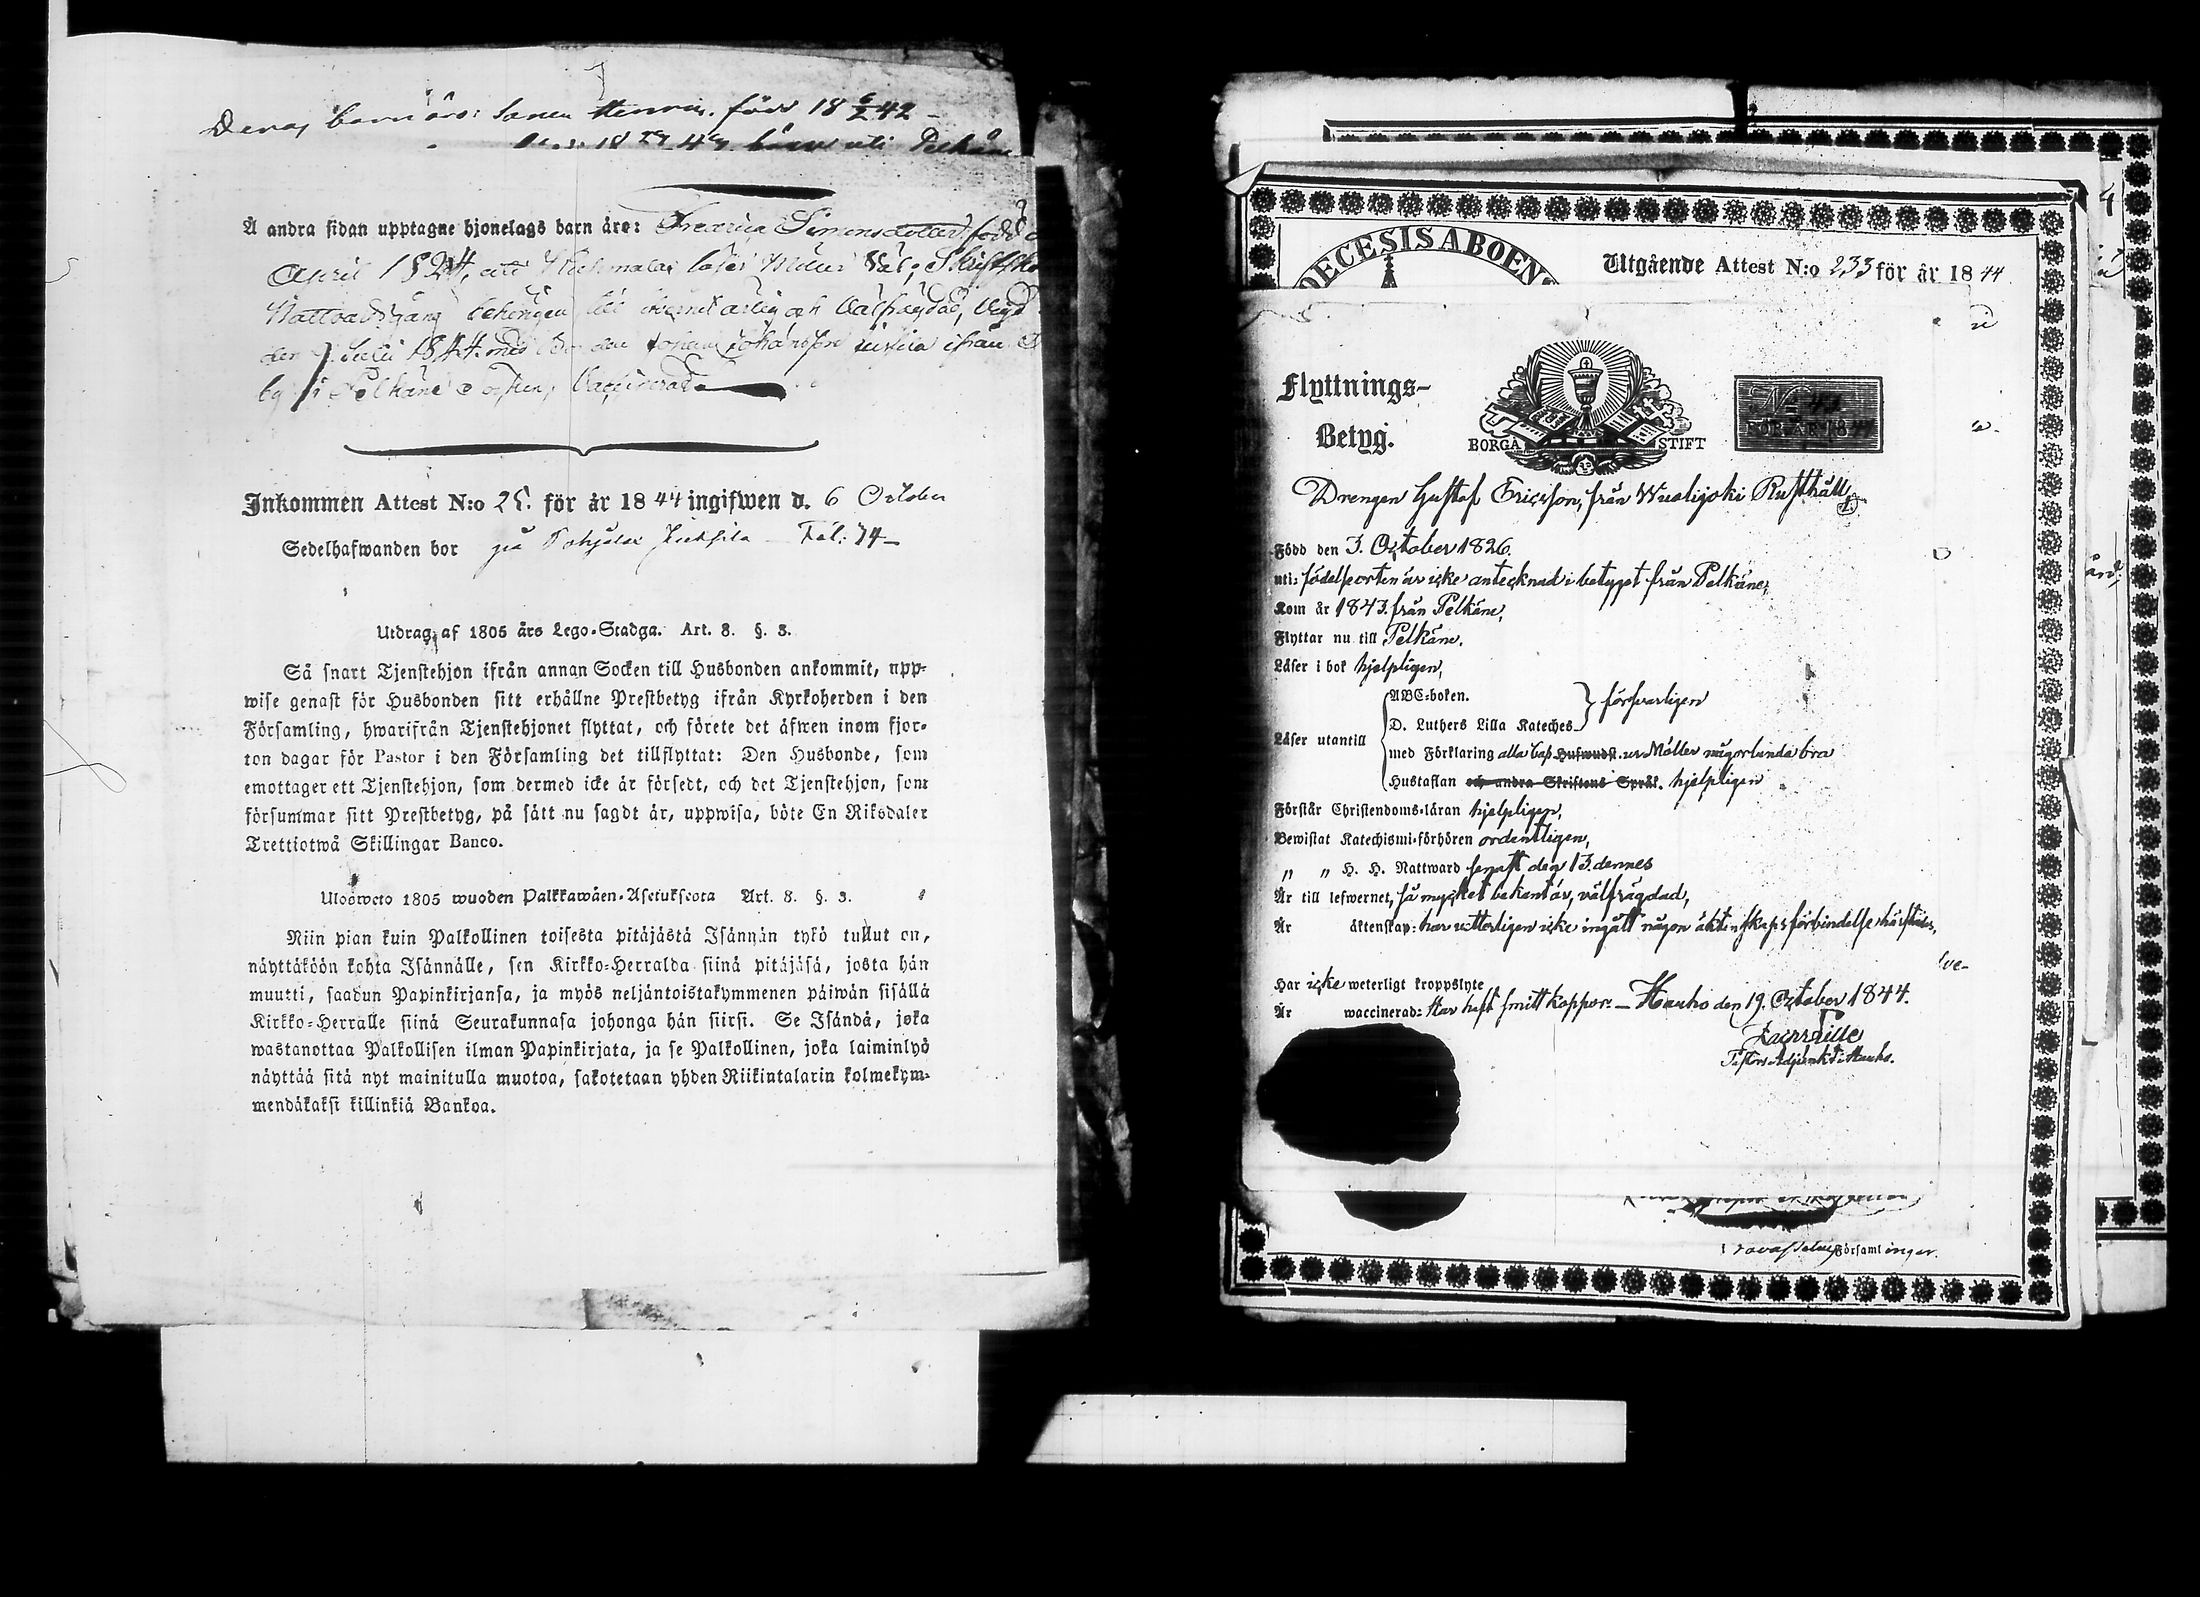 Deras barn äro: Sonen Henric, född 18 6/2 42 –
uti Pelkäne
Å andra sidan upptagne hjonelags barn äro: Fredrica Simonsdotter född
April 1824, uti
Nattvardsgång
den Julii 1844 med Johan Johansson ifrån
by i Pelkäne Socken, Vaccinerad
Inkommen Attest N:o 25. för år 1844 ingifwen d. 6 October
Sedelhafwanden bor på Pohjalax Fol: 74 –
Utdrag af 1805 års Lego-Stadga. Art. 8. §. 3.
Så snart Tjenstehjon ifrån annan Socken till Husbonden ankommit, upp-
wise genast för Husbonden sitt erhållne Prestbetyg ifrån Kyrkoherden i den
Församling, hwarifrån Tjenstehjonet flyttat, och förete det äfwen inom fjor-
ton dagar för Pastor i den Församling det tillflyttat: Den Husbonde, som
emottager ett Tjenstehjon, som dermed icke är försedt, och det Tjenstehjon, som
försummar sitt Prestbetyg, på sätt nu sagdt är, uppwisa, böte En Riksdaler
Trettiotwå Skillingar Banco.
Ulosweto 1805 wuoden Palkkawäen-Asetuksesta Art. 8. §. 3.
Niin pian kuin Palkollinen toisesta pitäjästä Isännän tykö tullut on,
näyttäköön kohta Isännälle, sen Kirkko-Herralda siinä pitäjäsä, josta hän
muutti, saadun Papinkirjansa, ja myös neljäntoistakymmenen päiwän sisällä
Kirkko-Herralle siinä Seurakunnasa johonga hän siirsi. Se Isändä, joka
wastanottaa Palkollisen ilman Papinkirjata, ja se Palkollinen, joka laiminlyö
näyttää sitä nyt mainitulla muotoa, sakotetaan yhden Riikintalarin kolmekym-
mendäkaksi killinkiä Bankoa.
DECESIS ABOENS
Utgående Attest N:o 233 för år 1844
Flyttnings-
Betyg.
BORGÅ STIFT
No 43
FÖR ÅR 1844
Drengen Gustaf Ericsson, från Wuolijoki Rusthåll,
Född den 3. October 1826.
uti: födelseorten är icke antecknad i betyget från Pelkäne,
Kom år 1843. från Pelkäne,
Flyttar nu till Pelkäne.
Läser i bok hjelpligen,
Läser utantill
ABC-boken.
D. Luthers Lilla Kateches
försvarligen
med Förklaring alla cap. Hufwudst. ur Möller någorlunda bra
Hustaflan och andra Skriftens Språk. hjelpligen
Förstår Christendoms-läran hjelpligen,
Bewistat Katechismi-förhören ordentligen,
„ „ H. H. Nattward senast den 13. dennes
Är till lefwernet, så mycket bekant är, välfrägdad,
Är äktenskap: har witterligen icke ingått någon äktenskapsförbindelse härstädes,
Har icke weterligt kroppslyte
Är waccinerad: Har haft smittkoppor. – Hauho den 19. October 1844.
Pastors Adjunkt i Hauho.
Församlingar.